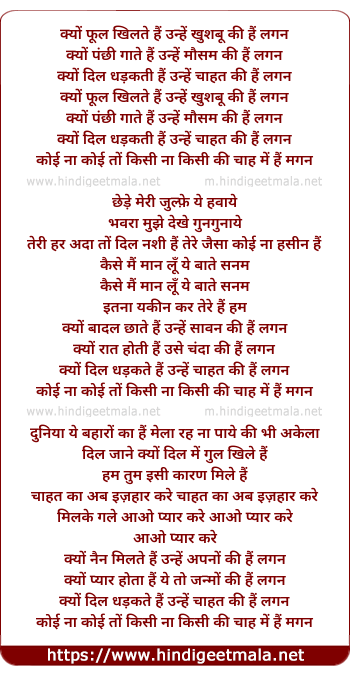 क्यों फूल खिलते हैं उन्हें खुशबू की हैं लगन
क्यों पंछी गाते हैं उन्हें मौसम की हैं लगन
क्यों दिल धड़कती हैं उन्हें चाहत की हैं लगन
क्यों फूल खिलते हैं उन्हें खुशबू की हैं लगन
क्यों पंछी गाते हैं उन्हें मौसम की हैं लगन
क्यों दिल धड़कती हैं उन्हें चाहत की हैं लगन
कोई ना कोई तों किसी ना किसी की चाह में हैं मगन
www.hindigeetmala.net m.hindigeetmala.net
छेड़े मेरी जुल्फ़े ये हवाये
भवरा मुझे देखे गुनगुनाये
तेरी हर अदा तों दिल नशी हैं तेरे जैसा कोई ना हसीन हैं
कैसे मैं मान लूँ ये बाते सनम
कैसे मैं मान लूँ ये बाते सनम
इतना यकीन कर तेरे हैं हम
क्यों बादल छाते हैं उन्हें सावन की हैं लगन
क्यों रात होती हैं उसे चंदा की हैं लगन
क्यों दिल धड़कते हैं उन्हें चाहत की हैं लगन
कोई ना कोई तों किसी ना किसी की चाह में हैं मगन
www.hindigeetmala.net m.hindigeetmala.net
दुनिया ये बहारों का हैं मेला रह ना पाये की भी अकेला
दिल जाने क्यों दिल में गुल खिले हैं
हम तुम इसी कारण मिले हैं
चाहत का अब इज़हार करे चाहत का अब इज़हार करे
मिलके गले आओ प्यार करे आओ प्यार करे
आओ प्यार करे
क्यों नैन मिलते हैं उन्हें अपनों की हैं लगन
क्यों प्यार होता हैं ये तो जन्मों की हैं लगन
क्यों दिल धड़कते हैं उन्हें चाहत की हैं लगन
कोई ना कोई तों किसी ना किसी की चाह में हैं मगन
https://www.hindigeetmala.net